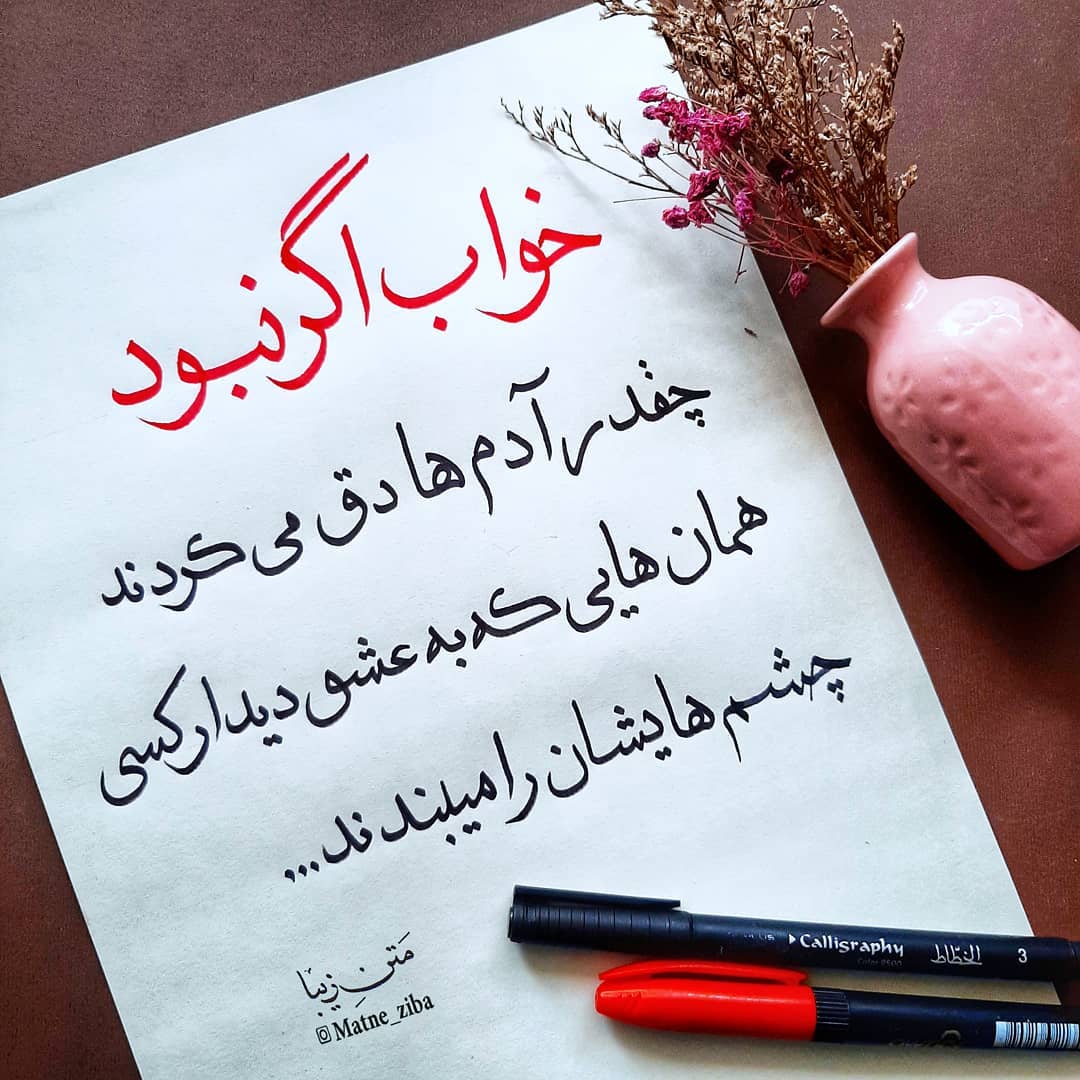 خواب اگر نبود
چقدر آدم ها دق می کردند
همان هایی که به عشق دیدار کسی
چشم هایشان را میبندند...
مَتنِ زیبا
@Matne_ziba
Calligraphy الخطّاط 3